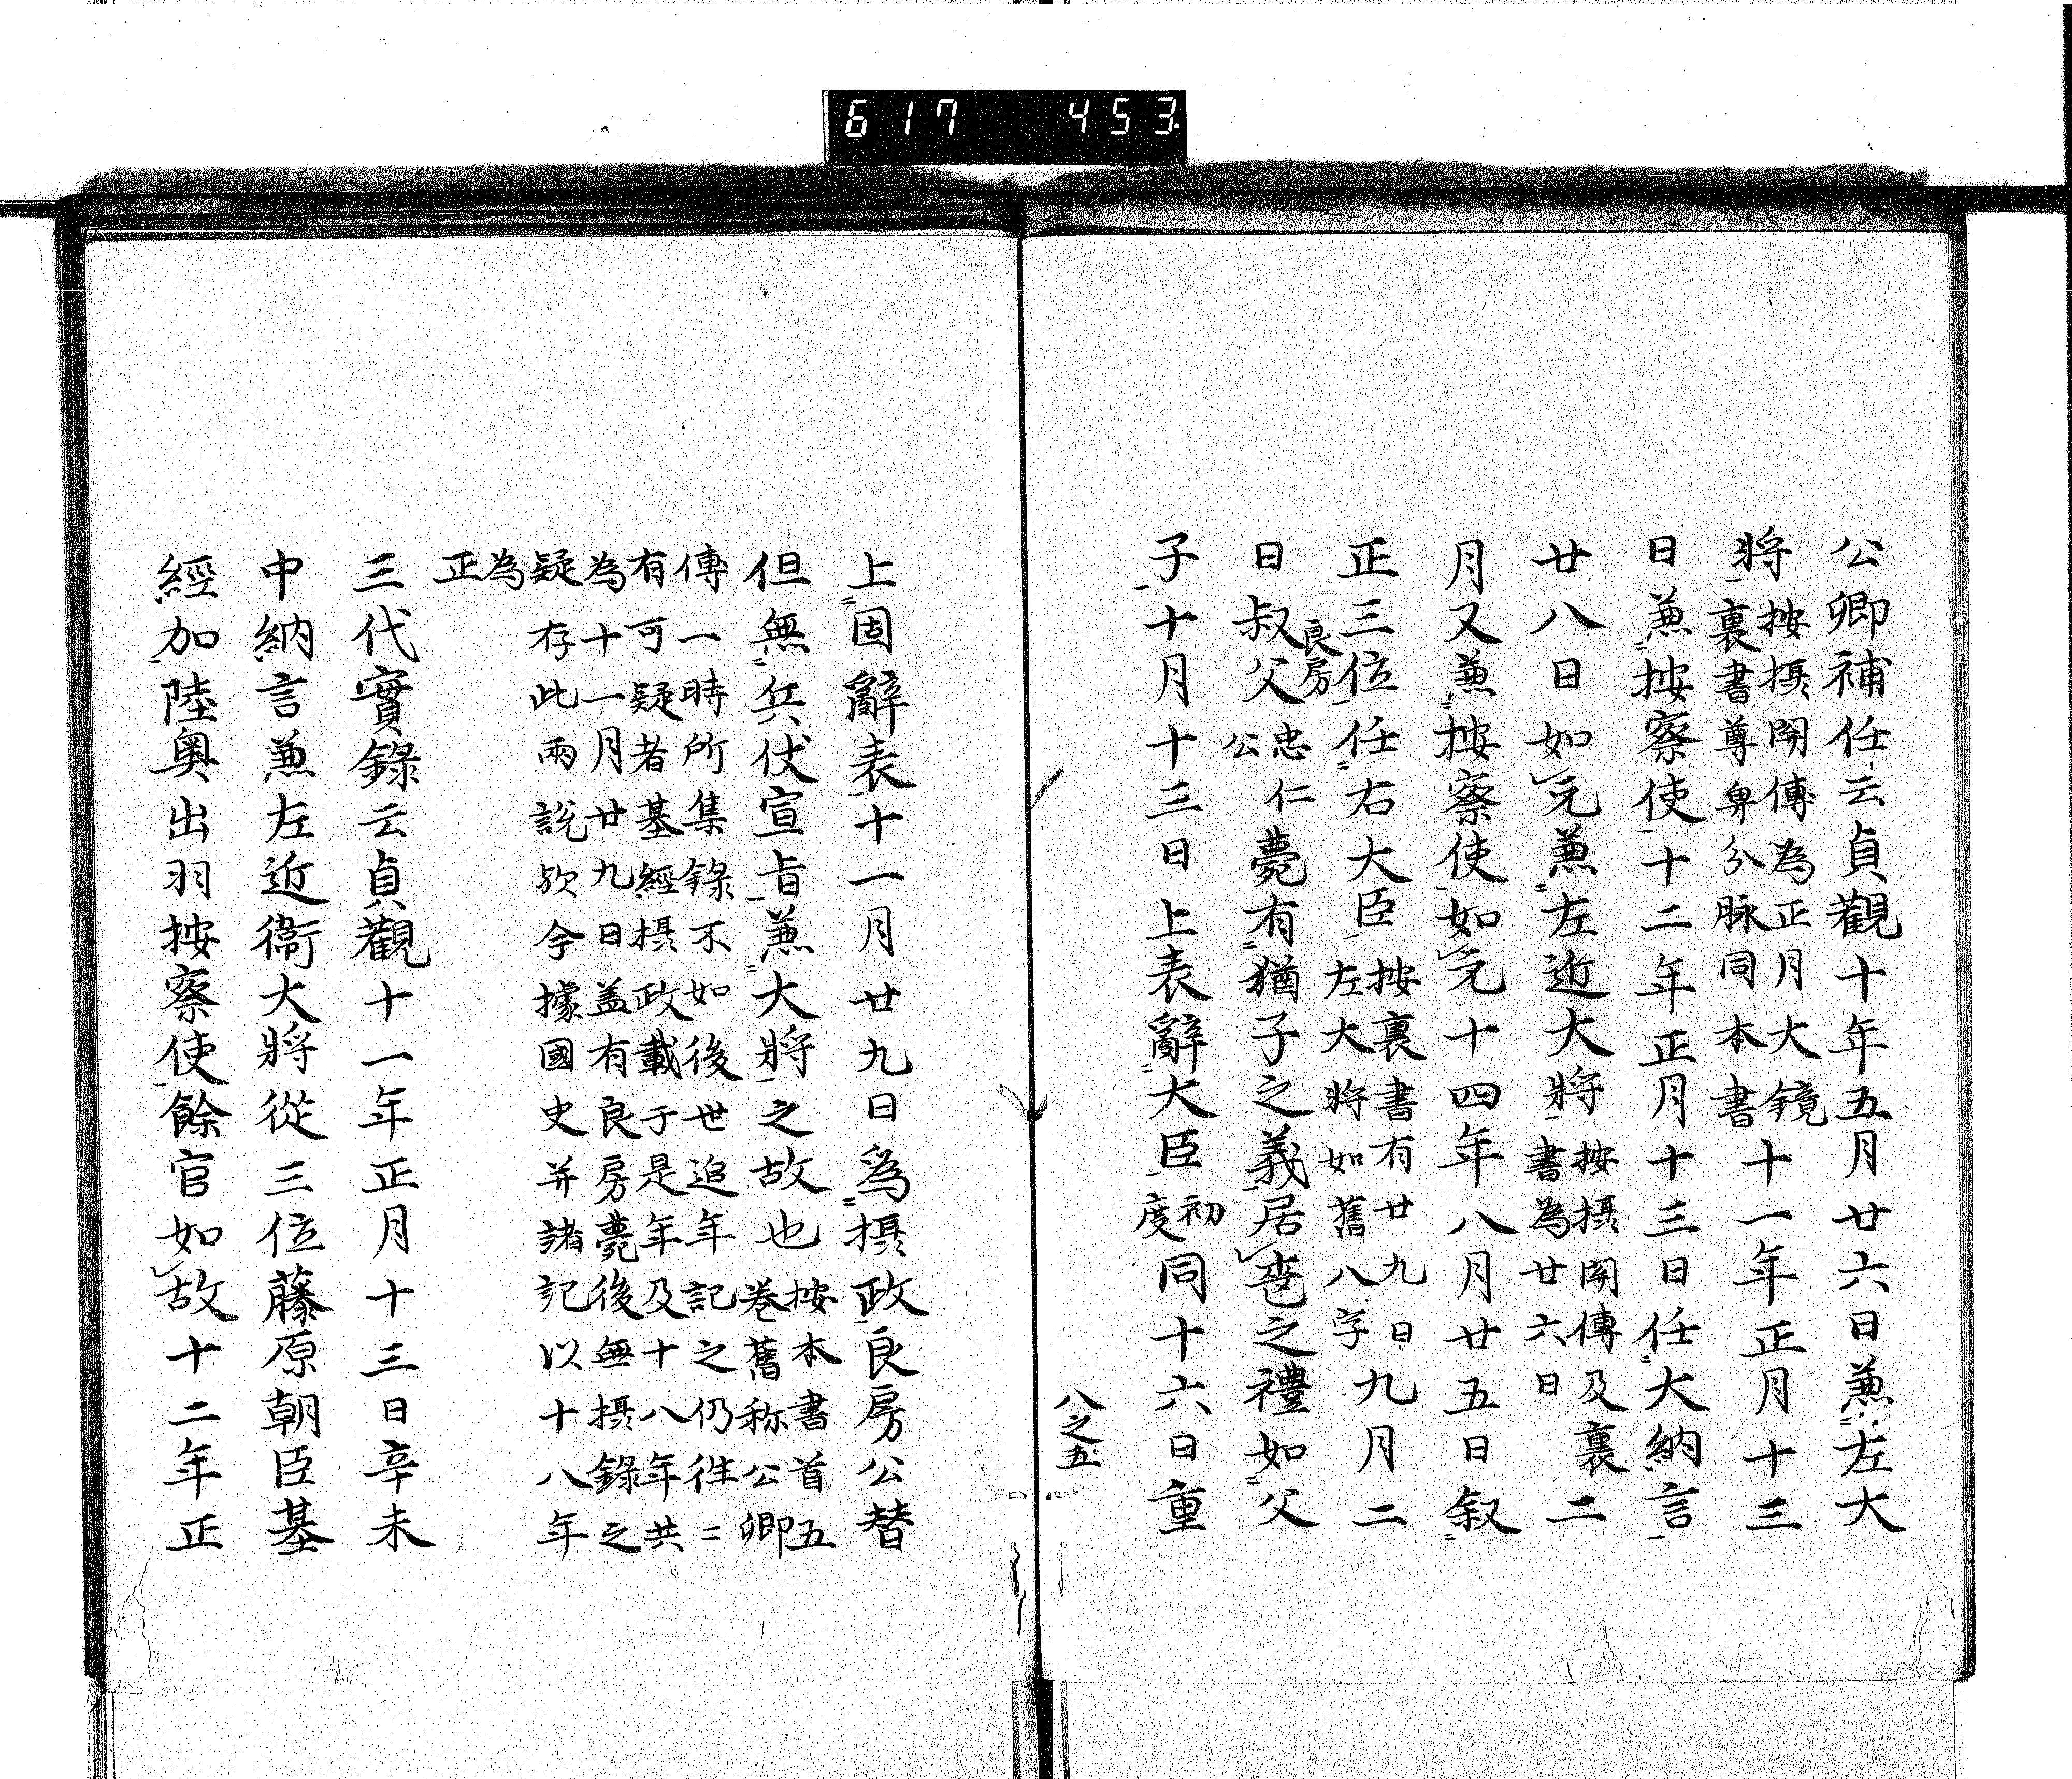 617 453
公卿補任云貞觀十年五月廿六日兼左大
將按摂関傳為正月大鏡裏書尊卑分脉同本書十一年正月十三
日兼按察使十二年正月十三日任大納言
廿八日如元兼左近大將按摂関傳及裏書為廿六日二
月又兼按察使如元十四年八月廿五日叙
正三位任右大臣按裏書有廿九日左大將如舊八字九月二
日叔父良房忠仁公薨有猶子之義居喪之禮如父
子十月十三日上表辭大臣初度同十六日重
八之五
上固辭表十一月廿九日為摂政良房公替
但無兵仗宣旨兼大將之故也按本書首五巻舊称公卿
傳一時所集錄不如後世追年記之仍往〻
有可疑者基經摂政載于是年及十八年共
為十一月廿九日盖有良房薨後無摂錄之
疑存此兩說欤今據國史并諸記以十八年
為
正
三代實錄云貞觀十一年正月十三日辛未
中納言兼左近衞大將從三位藤原朝臣基
經加陸奥出羽按察使餘官如故十二年正